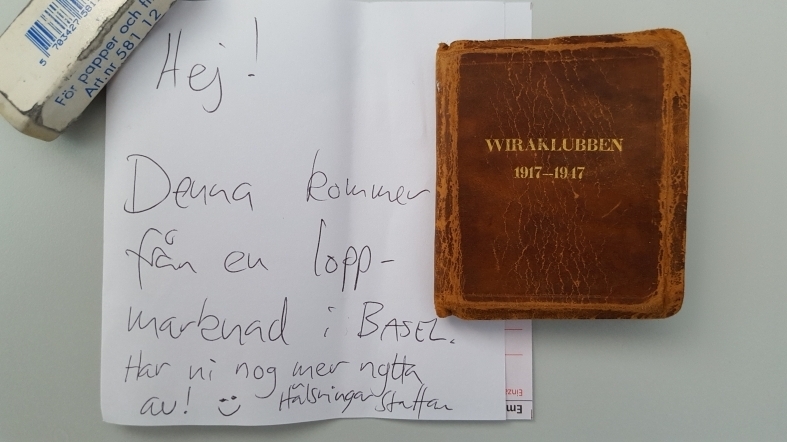 Hej!
Denna kommer
från en lopp-
marknad i BASEL.
Har ni nog mer nytta
av! :)
Hälsningar Staffan
WIRAKLUBBEN
1917—1947
För papper och
Art.nr 581 12
5 703427 581
Em
Einza